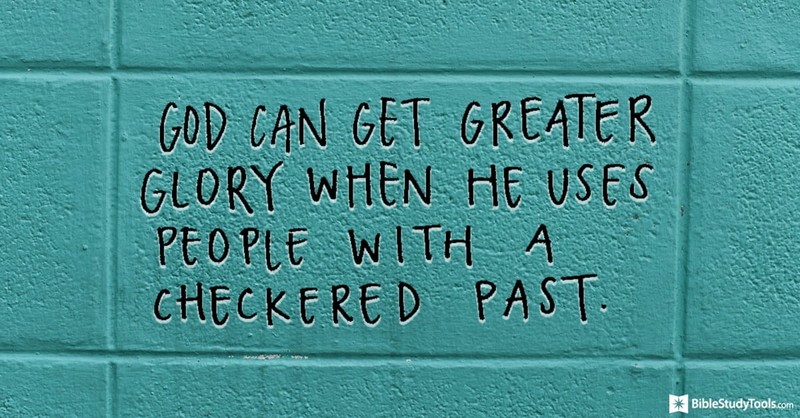 GOD CAN GET GREATER
GLORY WHEN HE USES
PEOPLE WITH A
CHECKERED PAST.
BibleStudyTools.com